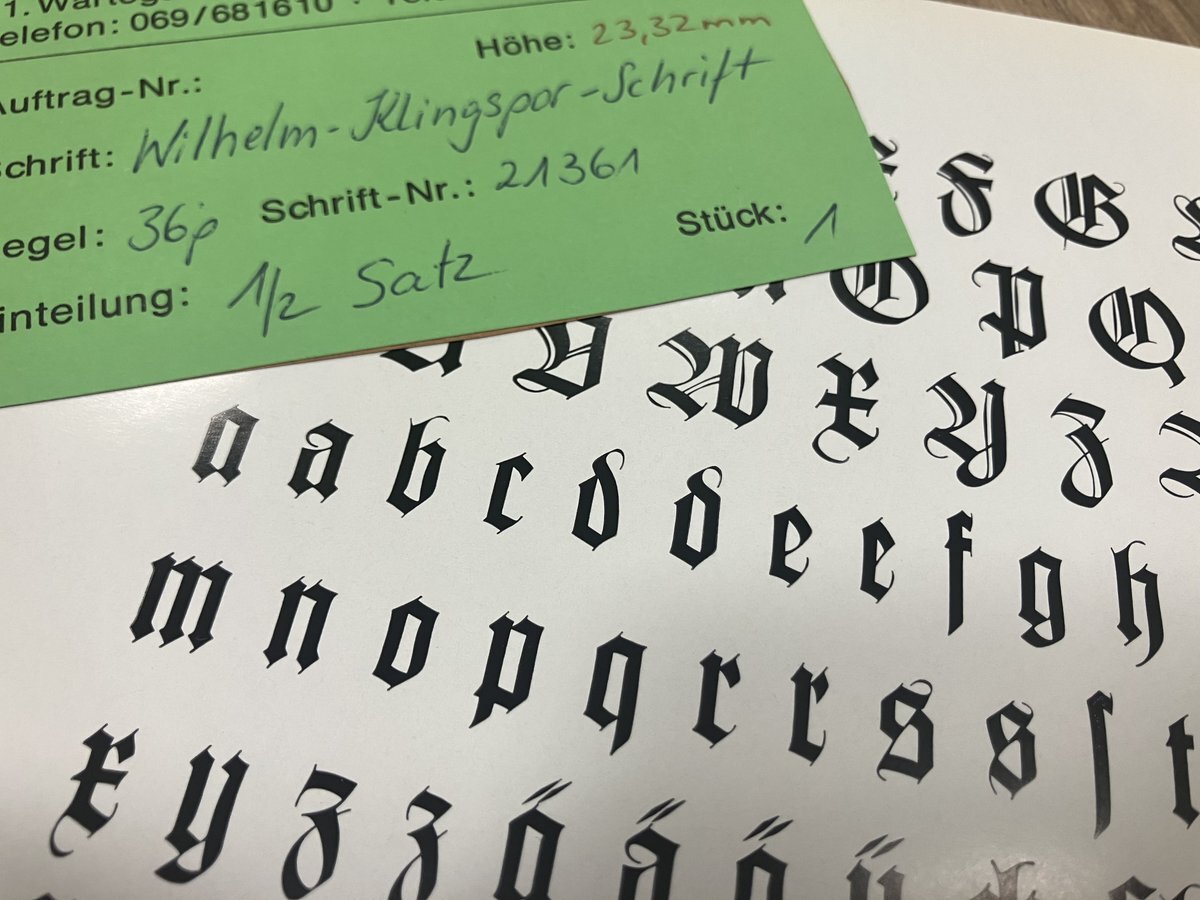 1.
elefon: 069/681610
Höhe: 23,32mm
Auftrag-Nr.:
Schrift: Wilhelm-Klingspor-Schrift
egel: 36p Schrift-Nr.: 21361
inteilung: 1/2 Satz Stück: 1
F G
O P Q
V W X Y Z
a a b c d d e e f g h
m n o p q r r s s ſ t
x y z z ä ä ö ü